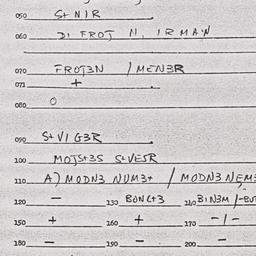 050 S+ NIR
060 DI FROJ N. IRMAN
070 FROJ3N / MEN3R
071 +
080 O
090 S+ VI G3R
100 MOJS+3S S+VESR
110 A) MODN3 NUM3+ / MODN3 NEM3
120 – 130 BON(+3 140 BIN3M /-BUT
150 + 160 + 170 -/-
180 – 190 – 200 –